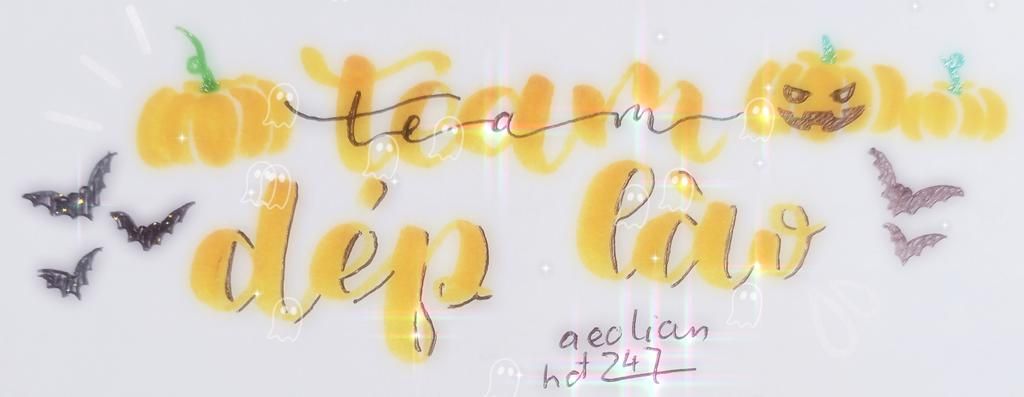 team
dép lào
aeolian
hot 247